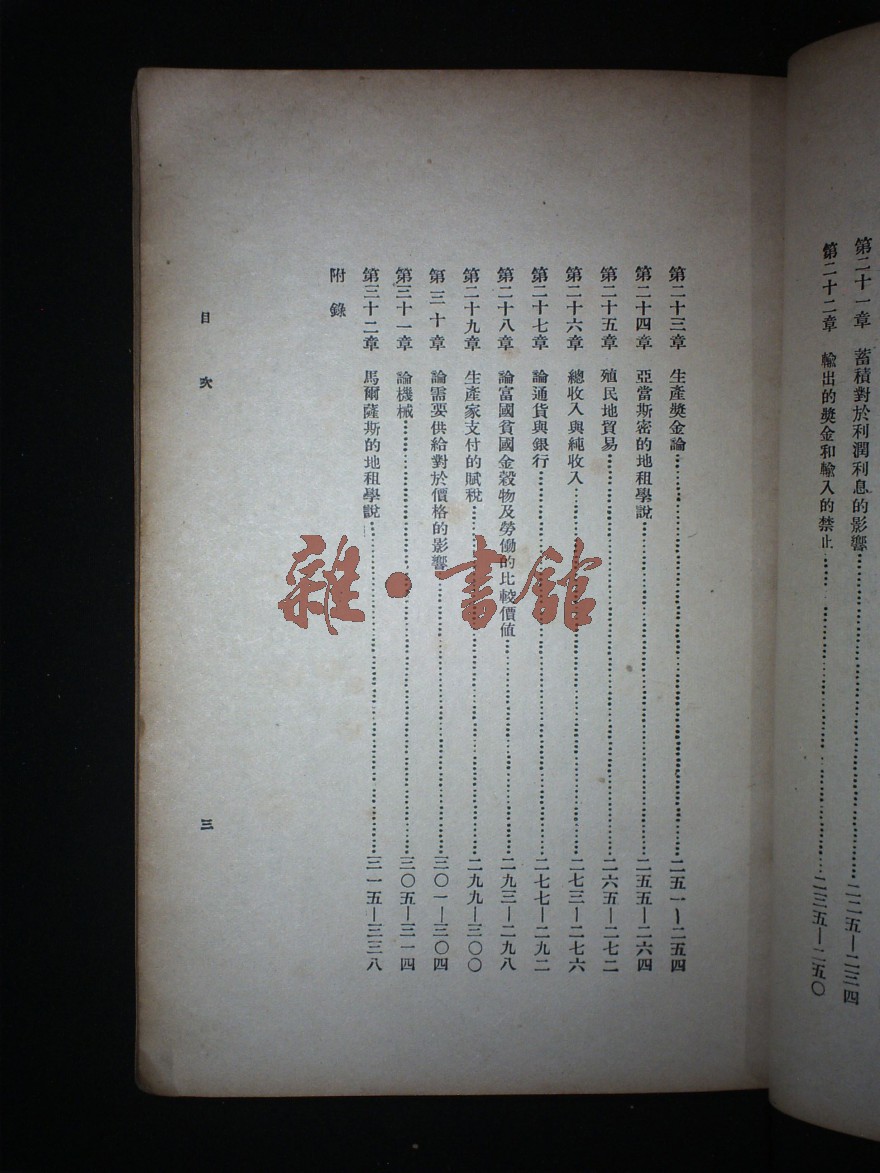 第二十一章 蓄積對於利潤利息的影響……二二五—二三四
第二十二章 輸出的獎金和輸入的禁止……二三五—二五〇
第二十三章 生產獎金論……二五一—二五四
第二十四章 亞當斯密的地租學說……二五五—二六四
第二十五章 殖民地貿易……二六五—二七二
第二十六章 總收入與純收入……二七三—二七六
第二十七章 論通貨與銀行……二七七—二九二
第二十八章 論富國貧國金穀物及勞働的比較價値……二九三—二九八
第二十九章 生產家支付的賦稅……二九九—三〇〇
第三十章 論需要供給對於價格的影響……三〇一—三〇四
第三十一章 論機械……三〇五—三一四
第三十二章 馬爾薩斯的地租學說……三一五—三三八
附錄
目次
三
雜·書館